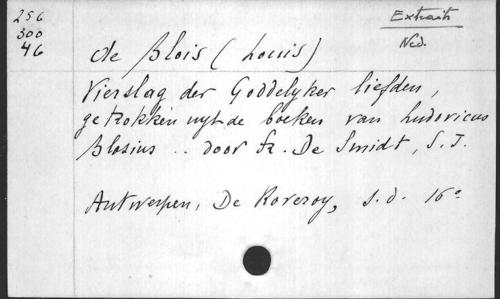 256
300
46
Extraits
Ned.
de Blois (Louis)
Vierslag der Goddelyker liefden,
getrokken uyt de boeken van Ludovicus
Blosius .. door Fr. De Smidt, S.J.
Antwerpen, De Roveroy, s.d. 16°